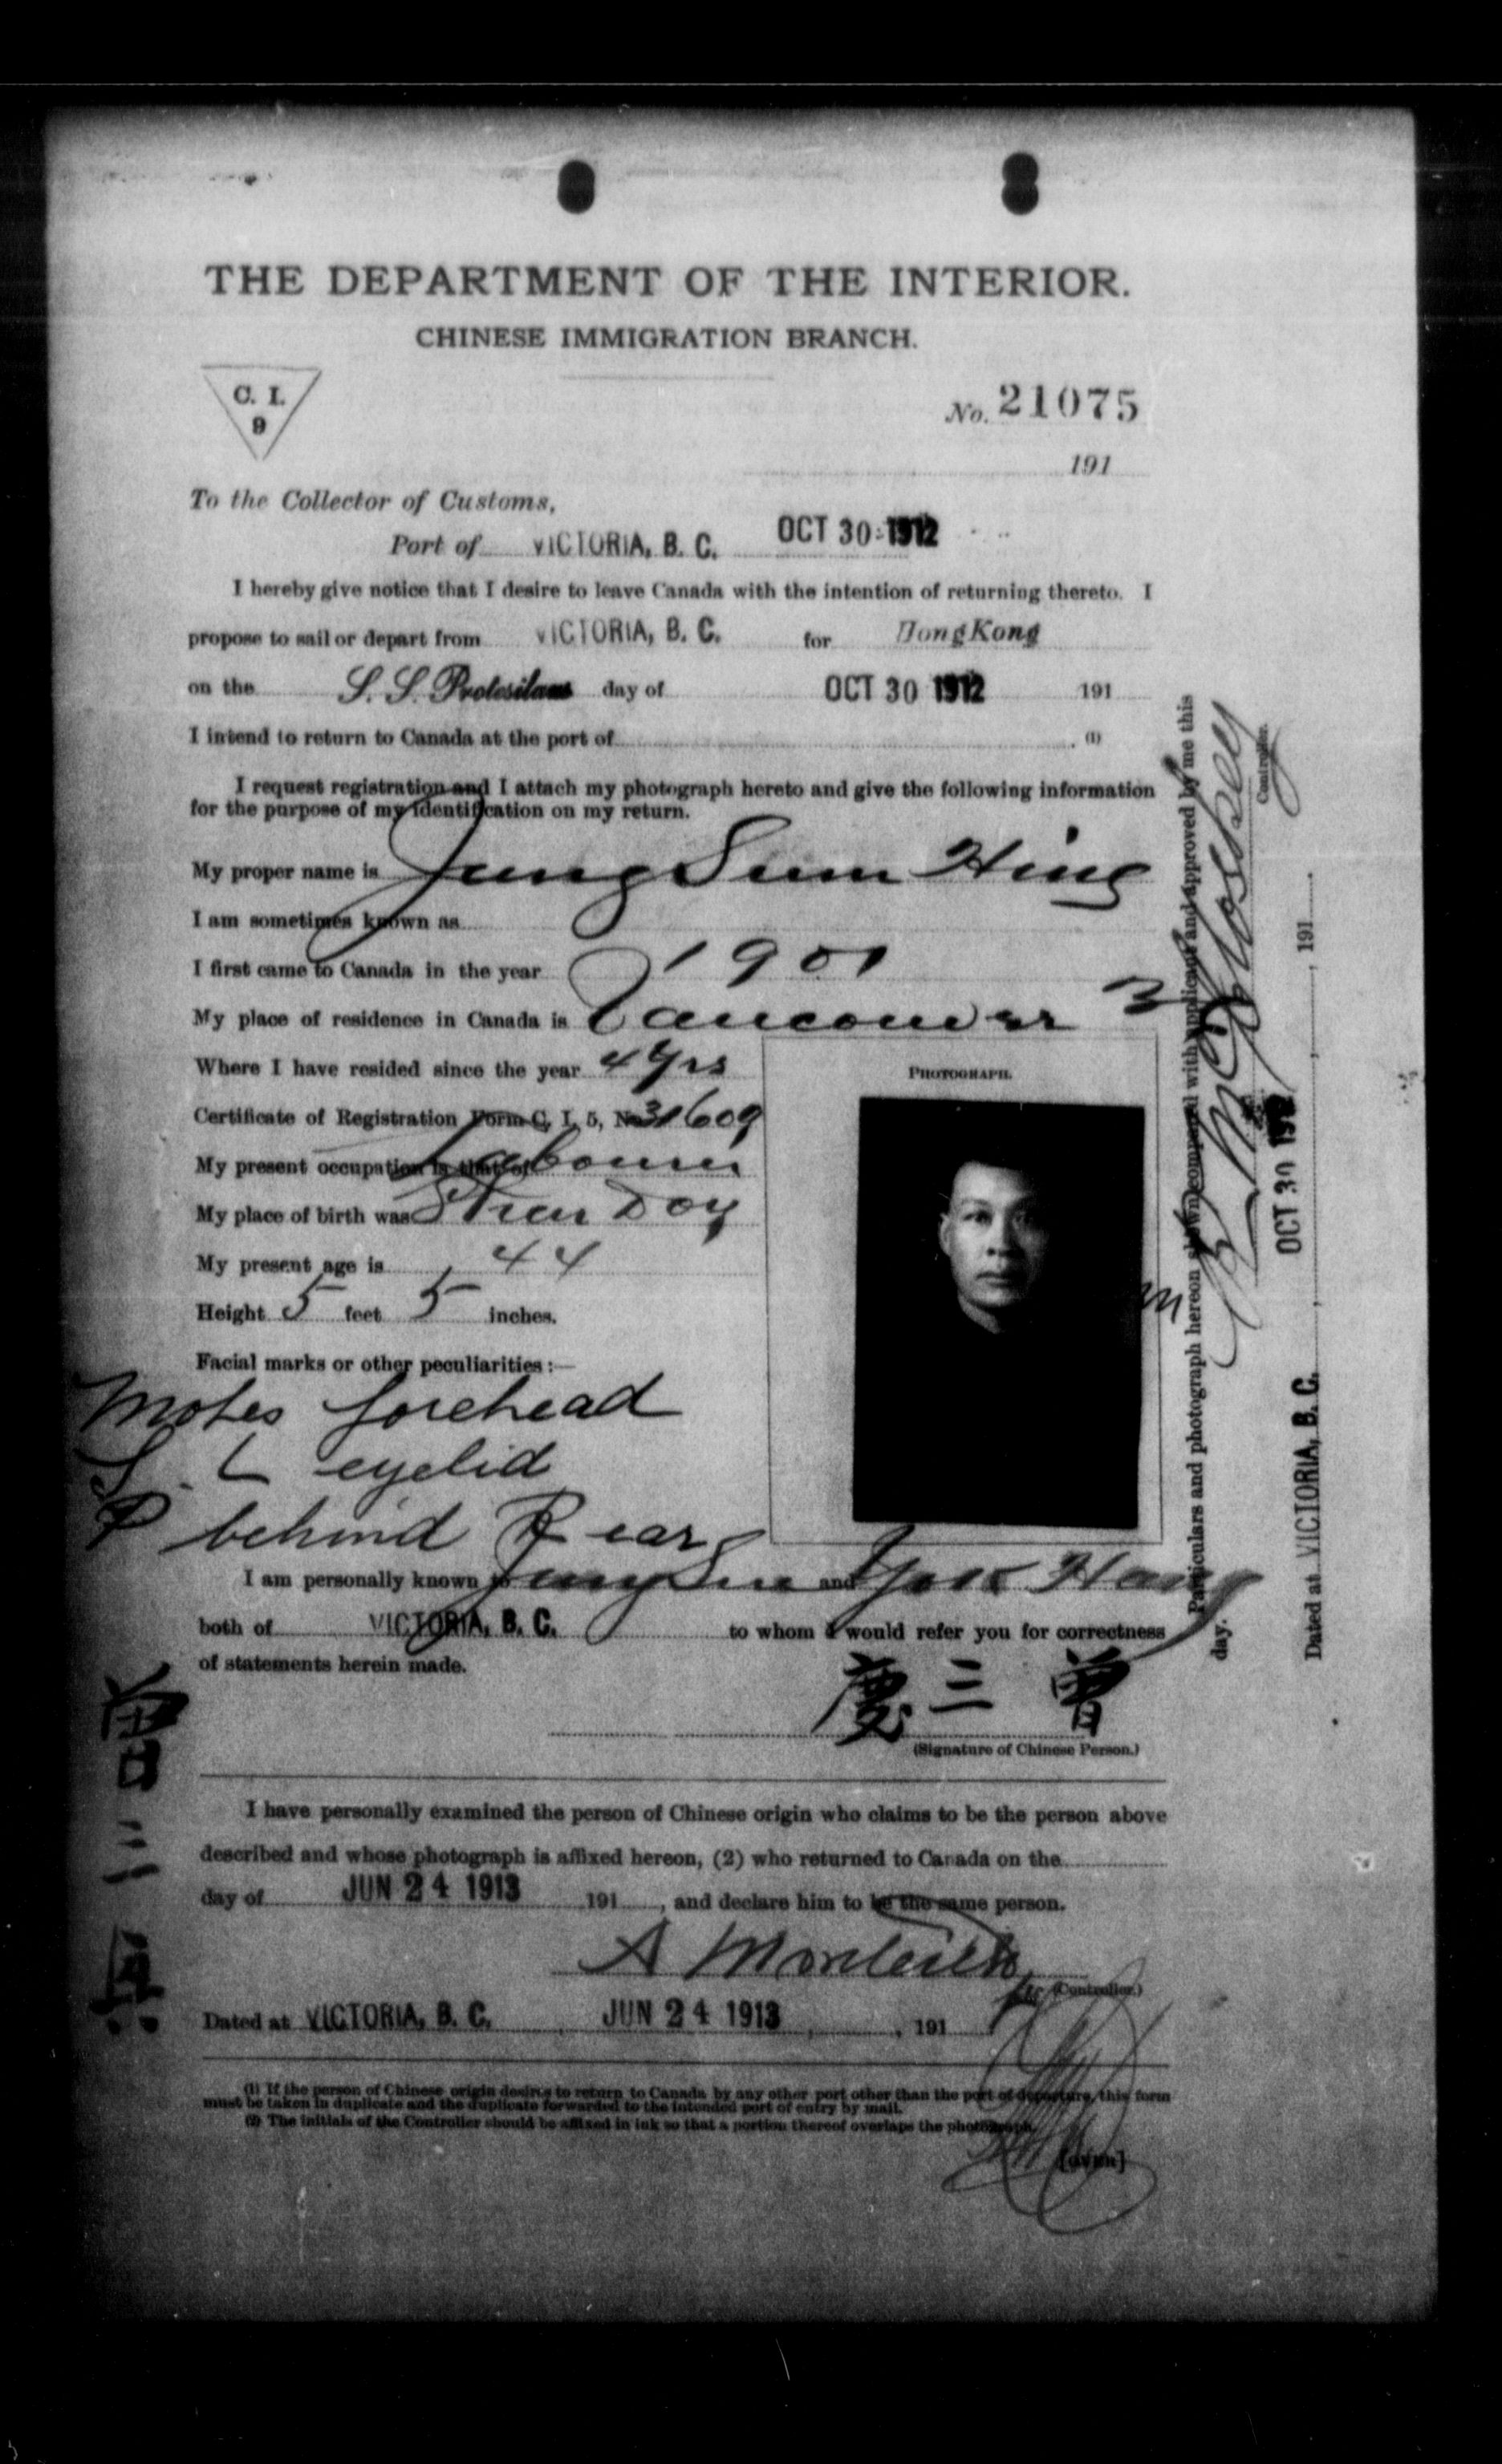 THE DEPARTMENT OF THE INTERIOR.
CHINESE IMMIGRATION BRANCH.
C. I.
9
No. 21075
191
To the Collector of Customs,
Port of VICTORIA, B. C. OCT 30 1912
I hereby give notice that I desire to leave Canada with the intention of returning thereto. I
propose to sail or depart from VICTORIA, B. C. for HongKong
on the S. S. Protesilaus day of OCT 30 1912 191
I intend to return to Canada at the port of (1)
I request registration and I attach my photograph hereto and give the following information
for the purpose of my identification on my return.
My proper name is Jung Sum Hing
I am sometimes known as
I first came to Canada in the year 1901
My place of residence in Canada is Vancouver
Where I have resided since the year 4 yrs
Certificate of Registration Form C. I. 5, No 31609
My present occupation is that of Labourer
My place of birth was Sheu Doy
My present age is 44
Height 5 feet 5 inches.
Facial marks or other peculiarities:—
Moles forehead
L eyelid
behind R ear
PHOTOGRAPH.
I am personally known to Jung See and Yock Hang
both of VICTORIA, B. C. to whom I would refer you for correctness
of statements herein made.
慶三曾
(Signature of Chinese Person.)
曾三慶
I have personally examined the person of Chinese origin who claims to be the person above
described and whose photograph is affixed hereon, (2) who returned to Canada on the
day of JUN 24 1913 191, and declare him to be the same person.
A Monteith
for (Controller.)
Dated at VICTORIA, B. C. JUN 24 1913, 191
(1) If the person of Chinese origin desires to return to Canada by any other port other than the port of departure, this form
must be taken in duplicate and the duplicate forwarded to the intended port of entry by mail.
(2) The initials of the Controller should be affixed in ink so that a portion thereof overlaps the photograph.
[OVER]
Particulars and photograph hereon shown compared with applicant and approved by me this
day.
Controller.
OCT 30 1912
Dated at VICTORIA, B. C. , 191